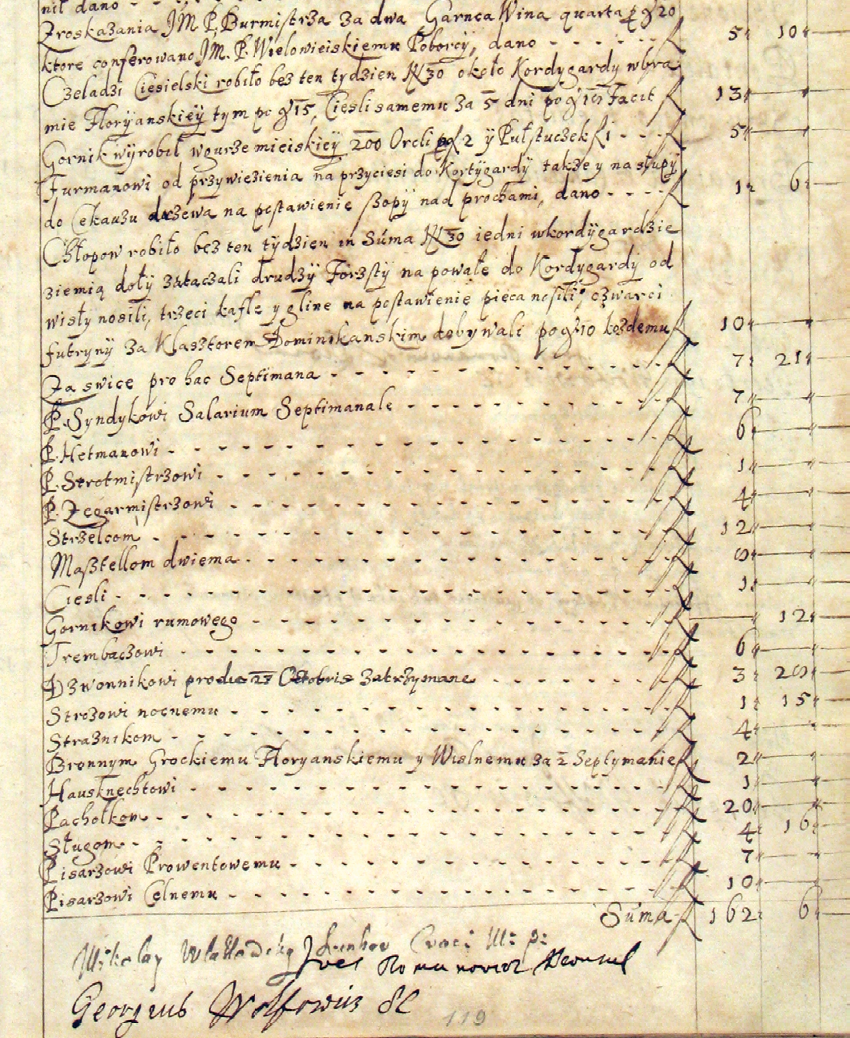 nił dano
Zroskazania JM P. Burmistrza za dwa Garnca Wina quarta p g 20
ktore conferowano JM. P. Wielowieiskiemu Poborcy, dano 5 10
Czeladzi Ciesielski robiło bez ten tydzien N 30 około Kordygardy wbra
mie Floryanskieÿ tym po g 15, Ciesli samemu za 5 dni po g facit 13
Gornik wÿrobił wgurze mieiskieÿ 200 Orcli 2 ÿ Pułstuczek f 1 5
Furmanowi od przywiezienia na przyciesi do Kortÿgardy także y na słupy
do Cekauzu drzewa na postawienie szopy nad prochami, dano 1 6
Chłopow robiło bez ten tydzien in Súma N 30 iedni wkordÿgardzie
ziemią doły zataczali drudzÿ Forszty na powałę do Kordÿgardÿ od
wisły nosili, trzeci kafle y gline na postawienie pieca nosili czwarci
futrynÿ za Klasztorem Dominikanskim dobywali po g 10 każdemu 10
Za swice pro hac Septimana 7 21
P. Syndÿkowi Salarium Septimanale 7
P. Hetmanowi 6
P. Strotmistrzowi 1
P. Zegarmistrzowi 4
Strzelcom 12
Masztellom dwiema 8
Ciesli 1
Gornikowi rumowego 12
Trembaczowi 6
Dzwonnikowi pro die 25 Octobris zatrzÿmane 3 28
Strożowi nocnemu 1 15
Strażnikom 4
Bronnym Grockiemu Floryanskiemu y Wislnemu za 2 Septymanie 2
Hausknechtowi 1
Pachołkom 20
Sługom 4 16
Pisarzowi Prowentowemu 7
Pisarzowi Celnemu 10
Súma 162 6
Mikolay
Georgius Wolfowicz SC
119